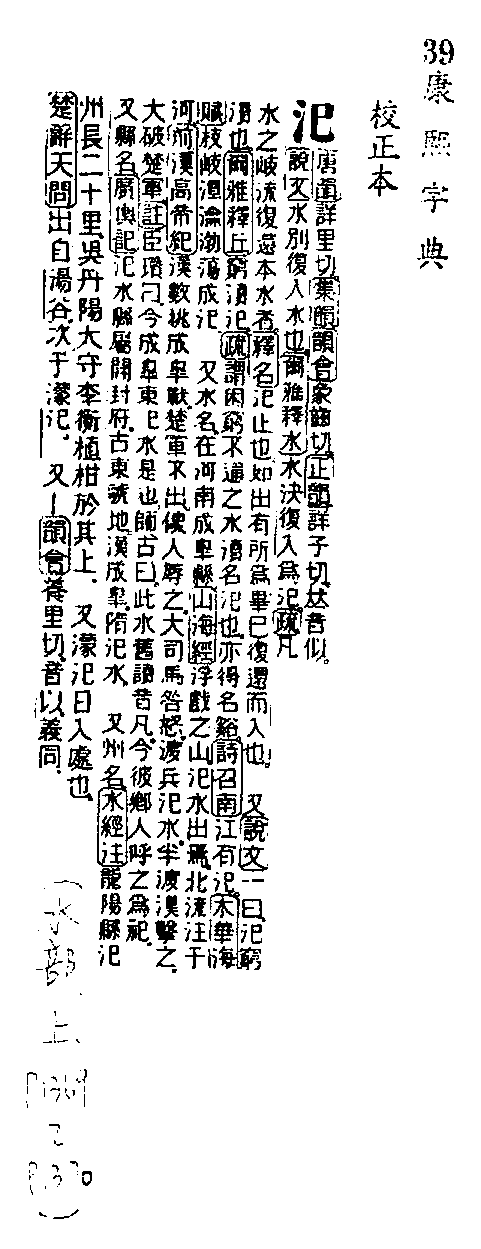 39 康熙字典
校正本
汜 唐韻詳里切集韻韻會象齒切正韻詳子切𠀤音似
說文水別復入水也爾雅釋水水決復入爲汜疏凡
水之岐流復還本水者釋名汜止也如出有所爲畢已復還而入也 又說文一曰汜窮
瀆也爾雅釋丘窮瀆汜疏謂困窮不通之水瀆名汜也亦得名谿詩召南江有汜木華海
賦枝岐潭瀹渤蕩成汜 又水名在河南成皐縣山海經浮戲之山汜水出焉北流注于
河前漢高帝紀漢數挑成皐戰楚軍不出使人辱之大司馬咎怒渡兵汜水半渡漢擊之
大破楚軍註臣瓚曰今成皐東汜水是也師古曰此水舊讀音凡今彼鄉人呼之爲祀
又縣名廣輿記汜水縣屬開封府古東虢地漢成皐隋汜水 又州名水經注龍陽縣汜
州長二十里吳丹陽太守李衡植柑於其上 又濛汜日入處也
楚辭天問出自湯谷次于濛汜 又韻會養里切音以義同
(水部上
P.1369
P.370)